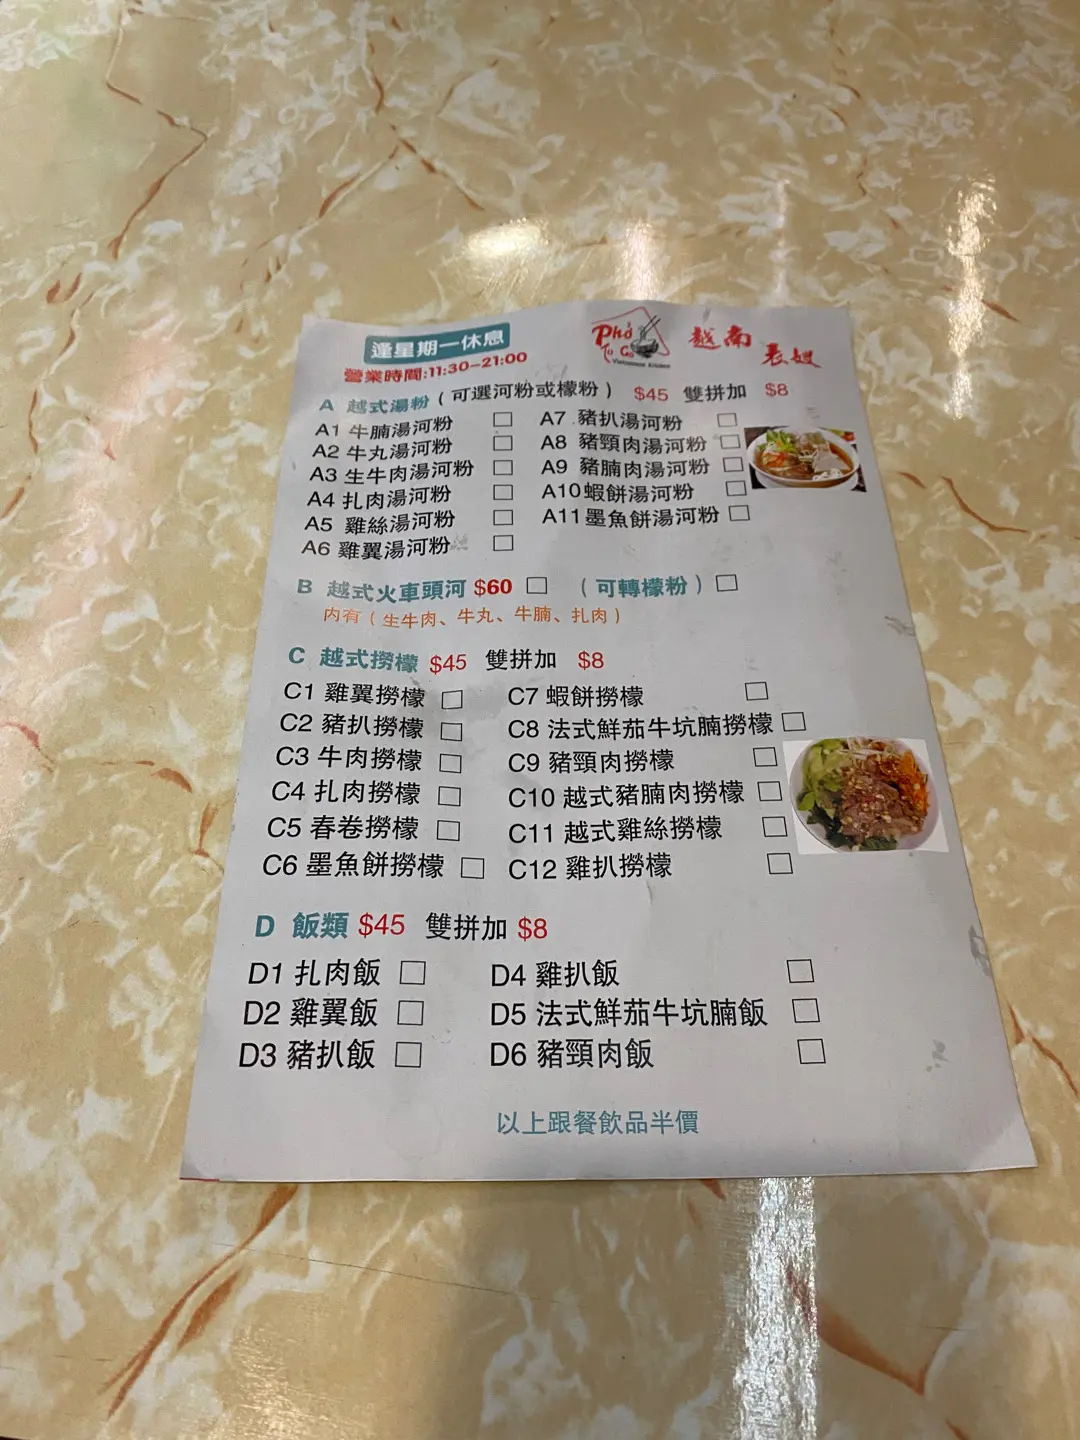 逢星期一休息
營業時間:11:30–21:00
Phở To Go
Vietnamese Kitchen
越南表姐
A 越式湯粉 ( 可選河粉或檬粉 ) $45 雙拼加 $8
A1 牛腩湯河粉 □
A2 牛丸湯河粉 □
A3 生牛肉湯河粉 □
A4 扎肉湯河粉 □
A5 雞絲湯河粉 □
A6 雞翼湯河粉 □
A7 豬扒湯河粉 □
A8 豬頸肉湯河粉 □
A9 豬腩肉湯河粉 □
A10 蝦餅湯河粉 □
A11 墨魚餅湯河粉 □
B 越式火車頭河 $60 □ ( 可轉檬粉 ) □
內有 ( 生牛肉、牛丸、牛腩、扎肉 )
C 越式撈檬 $45 雙拼加 $8
C1 雞翼撈檬 □
C2 豬扒撈檬 □
C3 牛肉撈檬 □
C4 扎肉撈檬 □
C5 春卷撈檬 □
C6 墨魚餅撈檬 □
C7 蝦餅撈檬 □
C8 法式鮮茄牛坑腩撈檬 □
C9 豬頸肉撈檬 □
C10 越式豬腩肉撈檬 □
C11 越式雞絲撈檬 □
C12 雞扒撈檬 □
D 飯類 $45 雙拼加 $8
D1 扎肉飯 □
D2 雞翼飯 □
D3 豬扒飯 □
D4 雞扒飯 □
D5 法式鮮茄牛坑腩飯 □
D6 豬頸肉飯 □
以上跟餐飲品半價